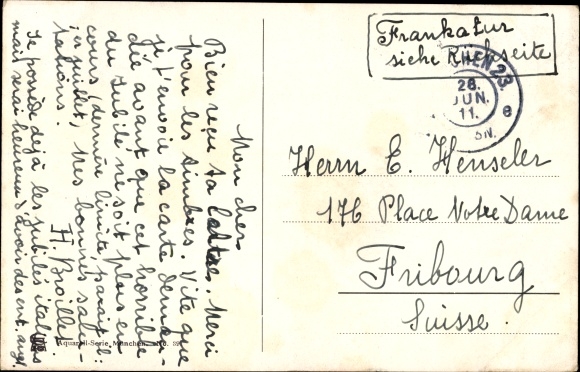 Mon cher
Bien reçu ta lettre. Merci
pour les timbres. Vite que
je t'envoie la carte deman-
dée avant que cet horrible
du Jubilé ne soit plus en
cours, dernière limite, paraît-il:
1er juillet, Mes bonnes salu-
tations.
H. Broillet.
Je possède déjà les jubilés italiens
mais serai heureux d'avoir des ent. angl.
Aquarell-Serie, München. No. 39
Frankatur
siehe Rückseite
HEN 23.
28.
JUN.
11.
e
SN.
Herrn E. Henseler
176 Place Notre Dame
Fribourg
Suisse.